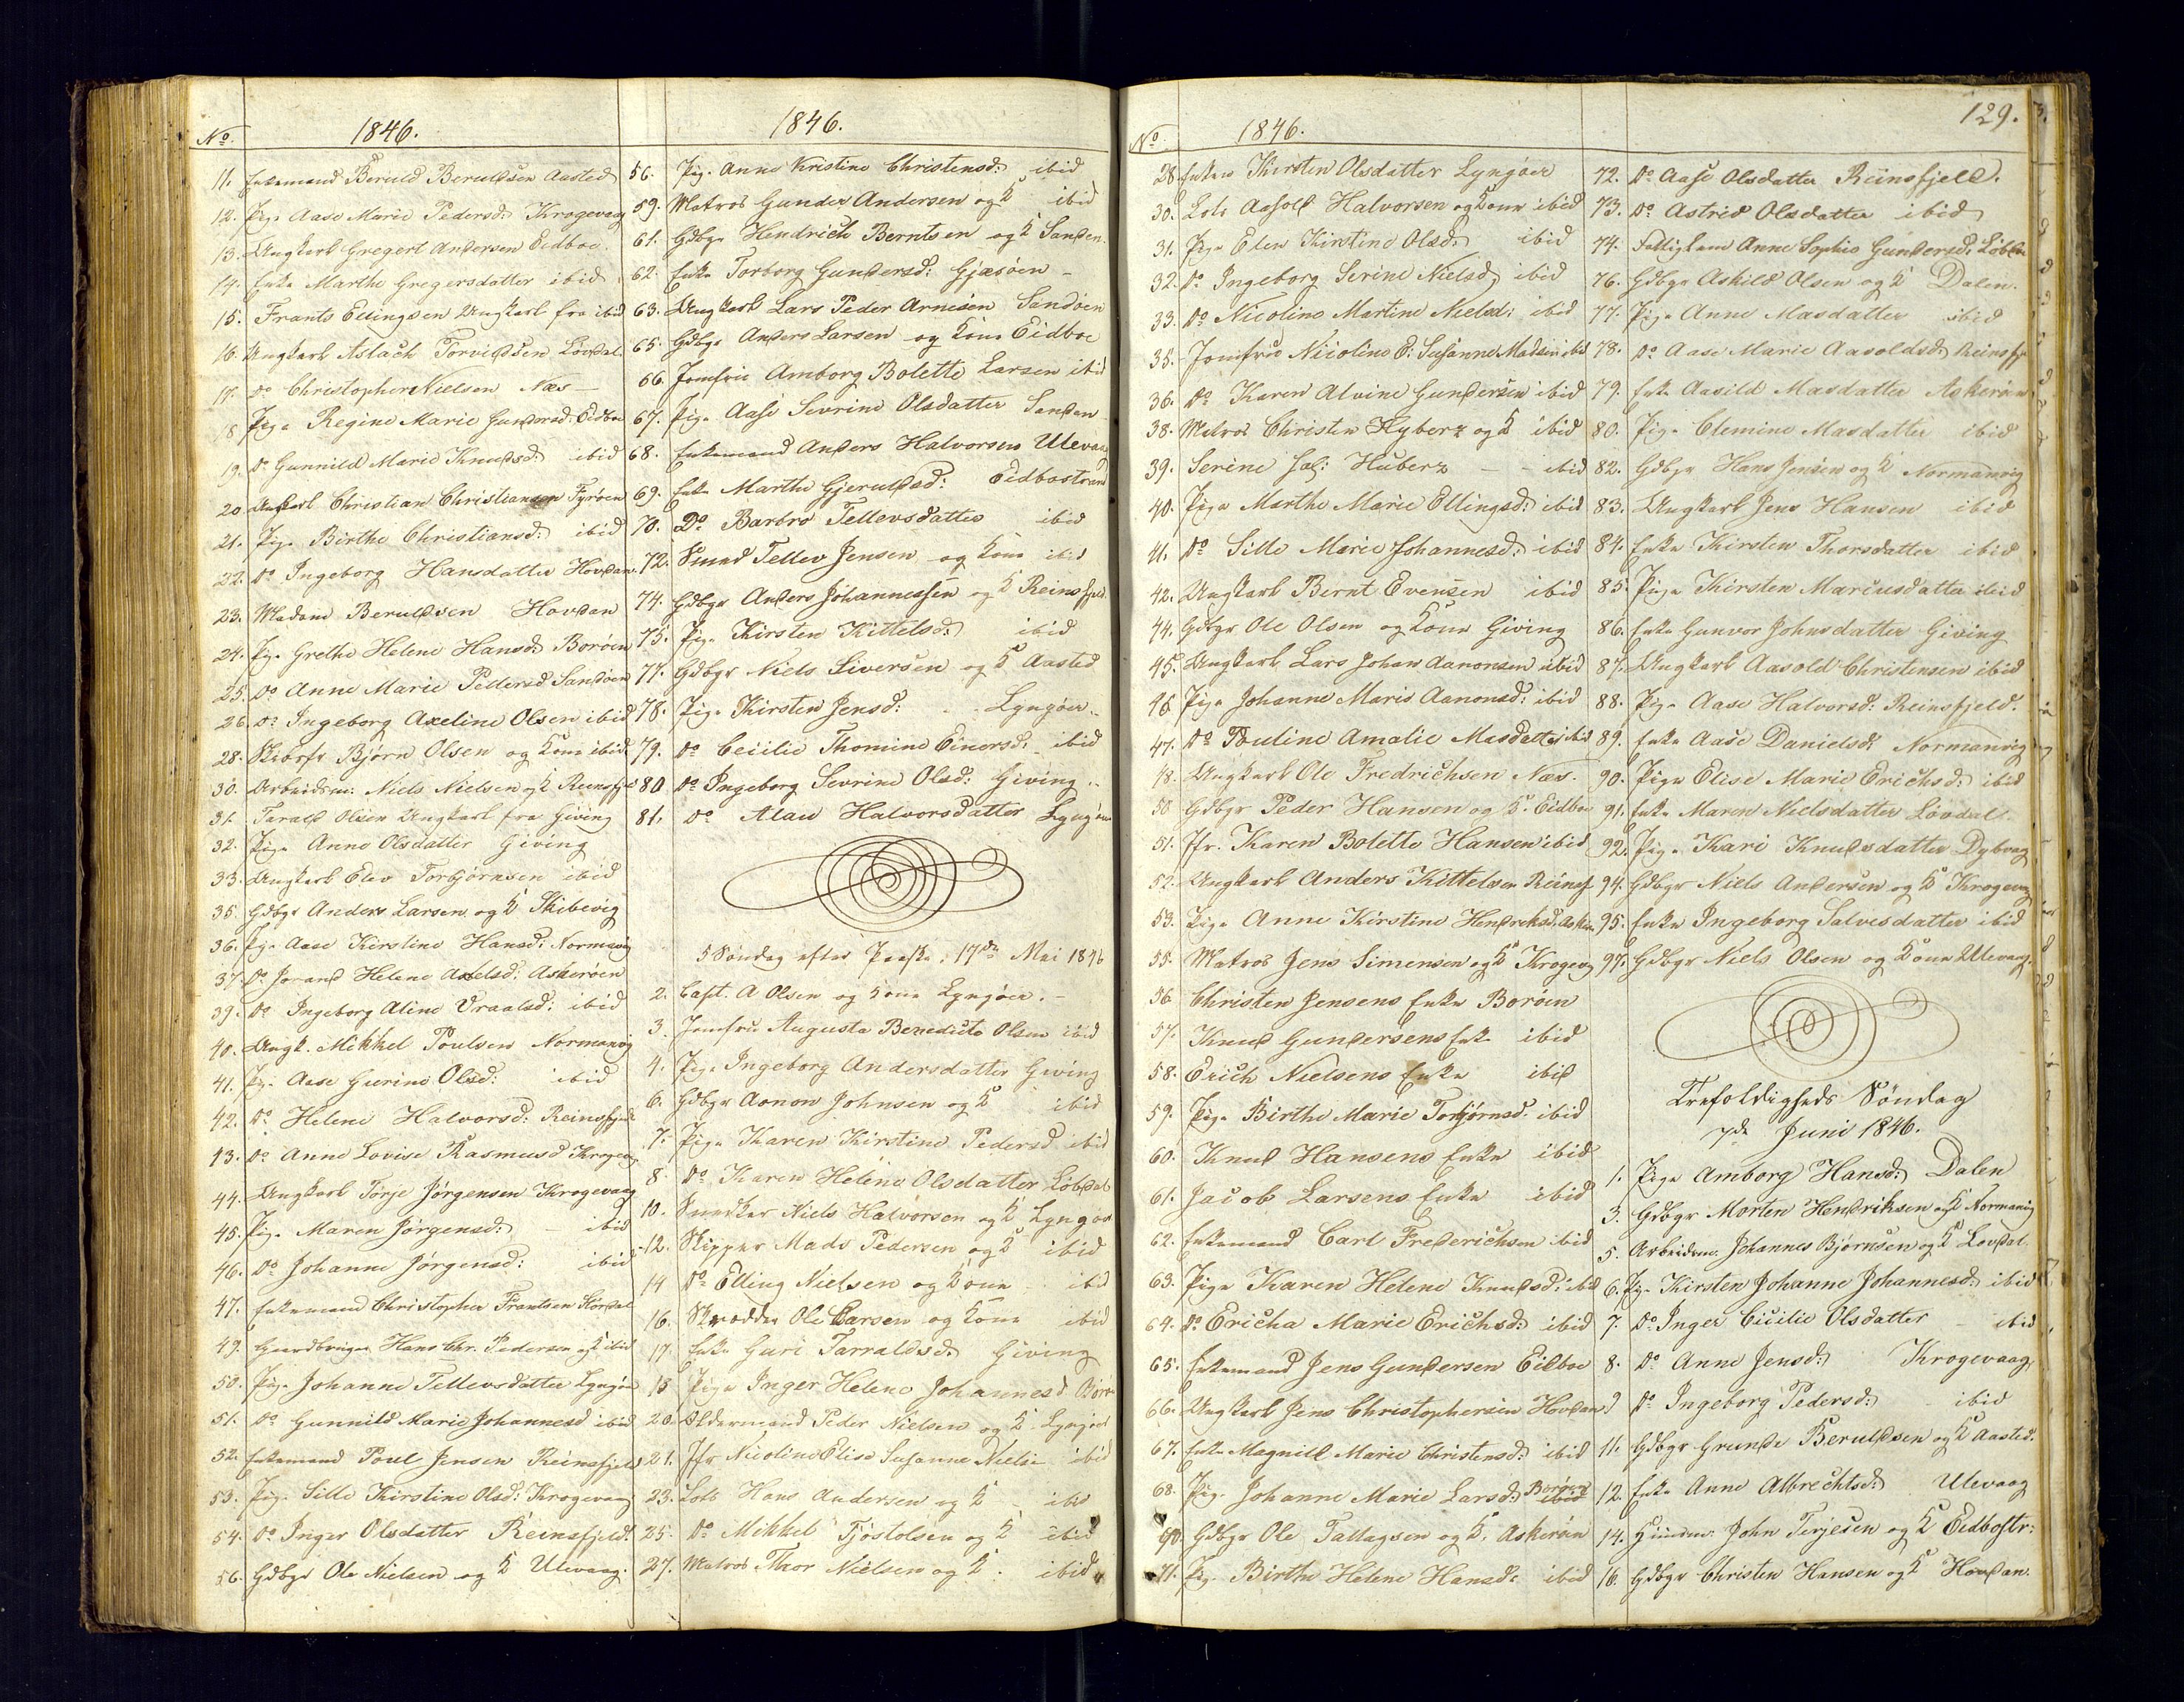 No. 1846.
11. Enkemand Beruld Beruldsen Aasted
12. Pige Aase Marie Pedersd: Krogevaag
13. Ungkarl Gregert Andersen Eidboe.
14. Enke Marthe Gregersdatter ibid
15. Frants Ellingsen Ungkarl fra ibid
16. Ungkarl Aslach Torvildsen Lövdal.
17. Do Christopher Nielsen Næs
18 Pige Regine Marie Gundersd: Eidboe
19. Do Gunnild Marie Knudsd: ibid
20 Ungkarl Christian Christiansen Fyröen
21. Pige Birthe Christiansd: ibid
22. Do Ingeborg Hansdatter Hovdan.
23. Madame Beruldsen Hovdan
24. Pige Grethe Helene Hansd: Boröen
25. Do Anne Marie Pedersd Sandöen
26. Do Ingeborg Axeline Olsen ibid
28. Bjørn Olsen og Kone ibid.
30. Arbeidsm: Niels Nielsen og K Reensfjel
31. Tarald Olsen Ungkarl fra Giving
32. Pige Anne Olsdatter Giving
33. Ungkarl Elev Torbjörnsen ibid
35. Gdbgr Anders Larsen og K Skibevig
36. Pige Aase Kirstine Hansd: Normavig
37. Do Jorand Helene Axelsd: Askeröen
39. Do Ingeborg Aline Vraalsd: ibid
40. Ungk. Mikkel Poulsen Normanvig
41. Pige Aase Gurine Olsd: ibid
42. Do Helene Halvorsd: Reinsfjeld
43. Do Anne Lovise Rasmusd Krogevg
44. Ungkarl Törje Jörgensen Krogevaag
45. Pige Maren Jörgensd: – ibid
46. Do Johanne Jörgensd: ibid
47. Enkemand Christopher Frantsen
49. Gaardbruger Hans Chr. Pedersen og K ibid
50. Pige Johanne Tellevsdatter Lyngöer
51. Do Gunnild Marie Johannesd ibid
52. Enkemand Poul Jensen Reinsfjeld
53. Pige Sille Kirstine Olsd: Krogevaag
54. Do Inger Olsdatter Reinsfjeld.
56. Gdbgr Ole Nielsen og K Ulevaag.
1846.
56. Pige Anne Kristine Christensd: ibid
59. Matros Gunder Andersen og K ibid
61. Gdbgr Hendrich Berntsen og K Sanden.
62. Enke Torborg Gundersd: Gjæsöen –
63. Ungkarl Lars Peder Arnesen Sandöen
65. Gdbgr Anders Larsen og Kone Eidboe
66. Jomfru Amborg Bolette Larsen ibid
67. Pige Aase Sevrine Olsdatter Sanden
68. Enkemand Anders Halvorsen Ulevaag
69. Enke Marthe Gjeruldsd: Eidbostrand
70. Do Barbro Tellevsdatter ibid
72. Smed Tellev Jensen og Kone ibid
74. Gdbgr Anders Johannessen og K Reinsfjeld
75. Pige Kirsten Kittelsd: ibid
77. Gdbgr Niels Siversen og K Aasted
78. Pige Kirsten Jensd: Lyngöer
79. Do Cecilie Thomine Einersd: ibid
80 Do Ingeborg Sevrine Olsd: Giving
81. Do Alau Halvorsdatter Lyngöer
5 Söndag efter Paaske, 17de Mai 1846
2. Capt. A Olsen og Kone Lyngöer.
3. Jomfru Augusta Benedicte Olsen ibid
4. Pige Ingeborg Andersdatter Giving
6. Gdbgr Aanon Johnsen og K ibid
7. Pige Karen Kirstine Pedersd ibid
8. Do Karen Helene Olsdatter Löbdal
10. Snedker Niels Halvorsen og K Lyngöer
12. Skipper Mads Pedersen og K ibid
14 Do Elling Nielsen og Kone ibid
16. Skrædder Ole Larsen og Kone ibid
17. Enke Guri Tarraldsd: Giving
18 Pige Inger Helene Johannesd. Borö
20. Oldermand Peder Nielsen og K Lyngöer
21. Jfr Nicoline Elise Susanne Nielsen ibid
23. Lods Hans Andersen og K – ibid
25. Do Mikkel Tjöstolsen og K ibid
27. Matros Thor Nielsen og K. ibid
129.
No. 1846.
28. Enken Kirsten Olsdatter Lyngöer
30. Lods Aasold Halvorsen og Kone ibid
31. Pige Elen Kirstine Olsd: ibid
32. Do Ingeborg Serine Nielsd: ibid
33. Do Nicoline Martine Nielsd: ibid
35. Jomfru Nicoline E: Susanne Madsen ibid
36. Do Karen Alvine Gundersen ibid
38. Matros Christen Hyberz og K ibid
39. Serine sal: Huberz – – ibid
40. Pige Marthe Marie Ellingsd: ibid
41. Do Sille Marie Johannesd: ibid
42. Ungkarl Bernt Evensen ibid
44. Gdbgr Ole Olsen og Kone Giving
45. Ungkarl Lars Johan Aanonsen ibid
46 Pige Johanne Maris Aanonsd: ibid
47. Do Pauline Amalie Masdatter ibid
48. Ungkarl Ole Fredrichsen Næs.
50 Gdbgr Peder Hansen og K. Eidboe
51. Jfr. Karen Bolette Hansen ibid
52. Ungkarl Anders Kittelsen Reinsf.
53. Pige Anne Kirstine Hendriksd: Asker
55. Matros Jens Simensen og K Krogevg
56 Christen Jensens Enke Boröen
57. Knud Gundersens Enke ibid
58. Erich Nielsens Enke ibid
59. Pige Birthe Marie Torbjörnsd. ibid
60. Knud Hansens Enke ibid
61. Jacob Larsens Enke ibid
62. Enkemand Carl Frederichsen ibid
63. Pige Karen Helene Knudsd: ibid
64. Do Ericha Marie Erichsd: ibid
65. Enkemand Jens Gundersen Eidboe
66. Ungkarl Jens Christophersen Hovdan
67. Enke Magnill Marie Christensd: ibid
68. Pige Johanne Marie Larsd: Boröen
70. Gdbgr Ole Tallagsen og K. Askeröen
71. Pige Birthe Helene Hansd: ibid
72. Do Aase Olsdatter Reinsfjeld.
73. Do Astrid Olsdatter ibid
74. Fattiglem Anne Sophie Gundersd: Löbdal
76. Gdbgr Askild Olsen og K Dalen.
77. Pige Anne Masdatter ibid
78. Do Aase Marie Aasoldsd: Reinsfje
79. Enke Aasild Masdatter Askeröen
80. Pige Clemine Masdatter ibid
82. Gdbgr Hans Jensen og K Normanvig
83. Ungkarl Jens Hansen ibid
84. Enke Kirsten Thorsdatter ibid
85. Pige Kirsten Mariusdatter ibid
86. Enke Gunvor Johnsdatter Giving
87. Ungkarl Aasold Christensen ibid
88. Pige Aase Halvorsd: Reinsfjeld.
89. Enke Aase Danielsd: Normanvig
90. Pige Elise Marie Erichsd: ibid
91. Enke Maren Nielsdatter Lövdal.
92. Pige Kari Knudsdatter Dybvag
94. Gdbgr Niels Andersen og K Krogevag
95. Enke Ingeborg Salvesdatter ibid
97. Gdbgr Niels Olsen og Kone Ulevaag.
Trefoldigheds Söndag
7de Juni 1846.
1. Pige Amborg Hansd: Dalen
3. Gdbgr Morten Hendriksen og K Normanvig
5. Arbeidsm. Johannes Björnsen og K Lovdal.
6. Pige Kirsten Johanne Johannesd: ibid
7. Do Inger Cicilie Olsdatter – ibid
8. Do Anne Jensd: Krogevaag
9 Do Ingeborg Pedersd: ibid
11. Gdbgr Grunde Beruldsen og K Aasted.
12. Enke Anne Albrechtsd: Ulevaag
14. Huusm: John Terjesen og K Eidbostr:
16. Gdbgr Christen Hansen og K Hovdan.